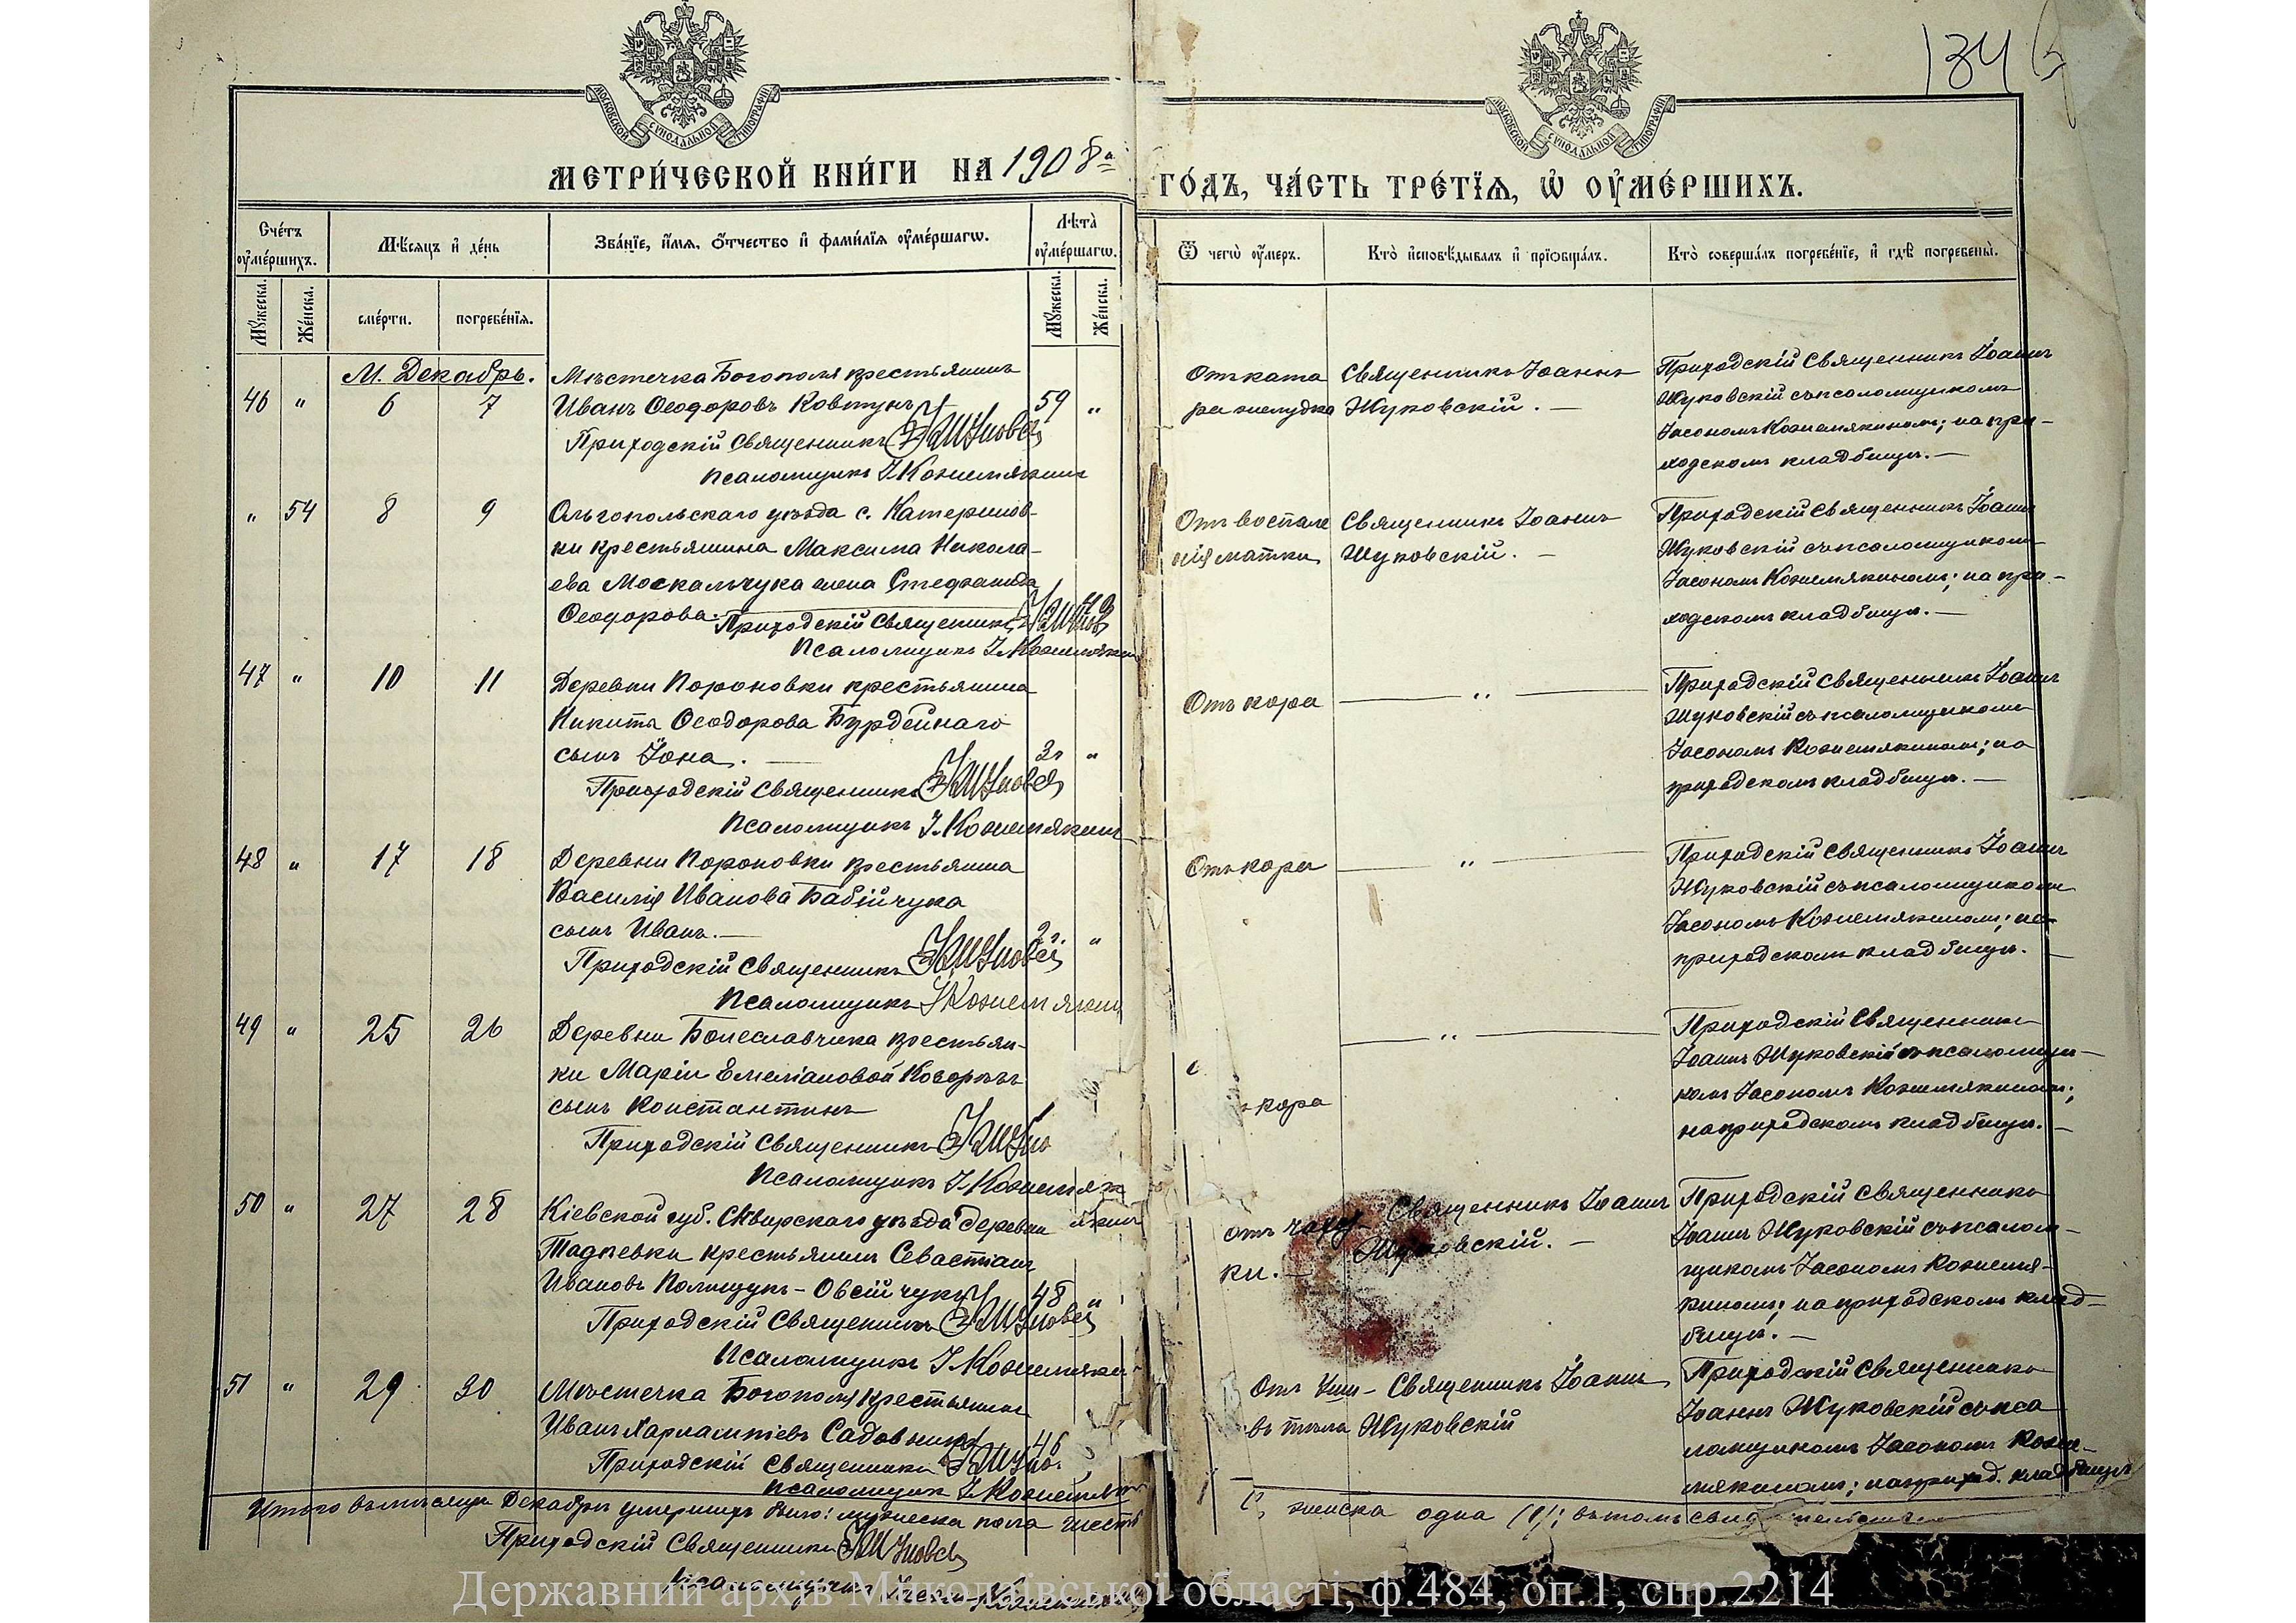 134
МОСКОВСКОЙ СѴНОДАЛЬНОЙ ТИПОГРАФІИ
МОСКОВСКОЙ СѴНОДАЛЬНОЙ ТИПОГРАФІИ
МЕТРИ́ЧЕСКОЙ КНИ́ГИ НА 1908й
ГО́ДЪ, ЧА́СТЬ ТРЕ́ТІѦ, Ѡ҆ ОУ҆МЕ́РШИХЪ.
Сче́тъ оу҆ме́ршихъ.
Мѣ́сяцъ и҆ де́нь
Зва́нїе, и҆́мѧ, ѻ҆́тчество и҆ фами́лїѧ оу҆ме́ршагѡ.
Лѣ́та оу҆ме́ршагѡ.
Ѿ чегѡ̀ оу҆́меръ.
Кто̀ и҆сповѣ́дывалъ и҆ прїѡбща́лъ.
Кто̀ соверша́лъ погребе́нїе, и҆ гдѣ̀ погребены̀.
Мꙋ́жеска.
Же́нска.
сме́рти.
погребе́нїѧ.
Мꙋ́жеска.
Же́нска.
М. Декабрь.
46 " 6 7
Мѣстечка Богополя крестьянинъ
Иванъ Ѳеодоровъ Ковтунъ 59 "
Приходскій Священникъ
Псаломщикъ І. Кожемякинъ
Отъ ката
ра желудка
Священникъ Іоаннъ
Жуковскій. —
Приходскій Священникъ Іоаннъ
Жуковскій съ псаломщикомъ
Іасономъ Кожемякинымъ; на при-
ходскомъ кладбищѣ. —
" 54 8 9
Ольгопольскаго уѣзда с. Катеринов-
ки крестьянина Максима Никола-
ева Москальчука жена Стефанида
Ѳеодорова. Приходскій Священникъ
Псаломщикъ І. Кожемякинъ
Отъ воспале
нія матки
Священникъ Іоаннъ
Жуковскій. —
Приходскій Священникъ Іоаннъ
Жуковскій съ псаломщикомъ
Іасономъ Кожемякинымъ; на при-
ходскомъ кладбищѣ. —
47 " 10 11
Деревни Пороновки крестьянина
Никита Ѳеодорова Бурдейнаго
сынъ Іона. — 3г "
Приходскій Священникъ
Псаломщикъ І. Кожемякинъ
Отъ кора
— " —
Приходскій Священникъ Іоаннъ
Жуковскій съ псаломщикомъ
Іасономъ Кожемякинымъ; на
приходскомъ кладбищѣ. —
48 " 17 18
Деревни Пороновки крестьянина
Василія Иванова Бабійчука
сынъ Иванъ. — 2г. "
Приходскій Священникъ
Псаломщикъ І. Кожемякинъ
Отъ кора
— " —
Приходскій Священникъ Іоаннъ
Жуковскій съ псаломщикомъ
Іасономъ Кожемякинымъ; на
приходскомъ кладбищѣ. —
49 " 25 26
Деревни Болеславчика крестьян-
ки Маріи Емеліановой
сынъ Константинъ
Приходскій Священникъ
Псаломщикъ І. Кожемякинъ
кора
— " —
Приходскій Священникъ
Іоаннъ Жуковскій съ псаломщи-
комъ Іасономъ Кожемякинымъ;
на приходскомъ кладбищѣ. —
50 " 27 28
Кіевской губ. Сквирскаго уѣзда деревни
крестьянинъ Севастіанъ
Ивановъ Полищукъ-Овсійчукъ 48 "
Приходскій Священникъ
Псаломщикъ І. Кожемякинъ
отъ чахот-
ки. —
Священникъ Іоаннъ
Жуковскій. —
Приходскій Священникъ
Іоаннъ Жуковскій съ псалом-
щикомъ Іасономъ Кожемя-
кинымъ; на приходскомъ клад-
бищѣ. —
51 " 29 30
Мѣстечка Богополя крестьянинъ
Иванъ Харлампіевъ Садовникъ 46
Приходскій Священникъ
Псаломщикъ І. Кожемякинъ
Отъ уши-
въ тѣла
Священникъ Іоаннъ
Жуковскій
Приходскій Священникъ
Іоаннъ Жуковскій съ пса
ломщикомъ Іасономъ Коже-
мякинымъ; на приход. кладбищѣ
Итого въ мѣсяцѣ Декабрѣ умершихъ было: мужеска пола шесть
женска одна (1); въ томъ свидѣтельств
Приходскій Священникъ
Псаломщикъ
Державний архів Миколаївської області, ф.484, оп.1, спр.2214